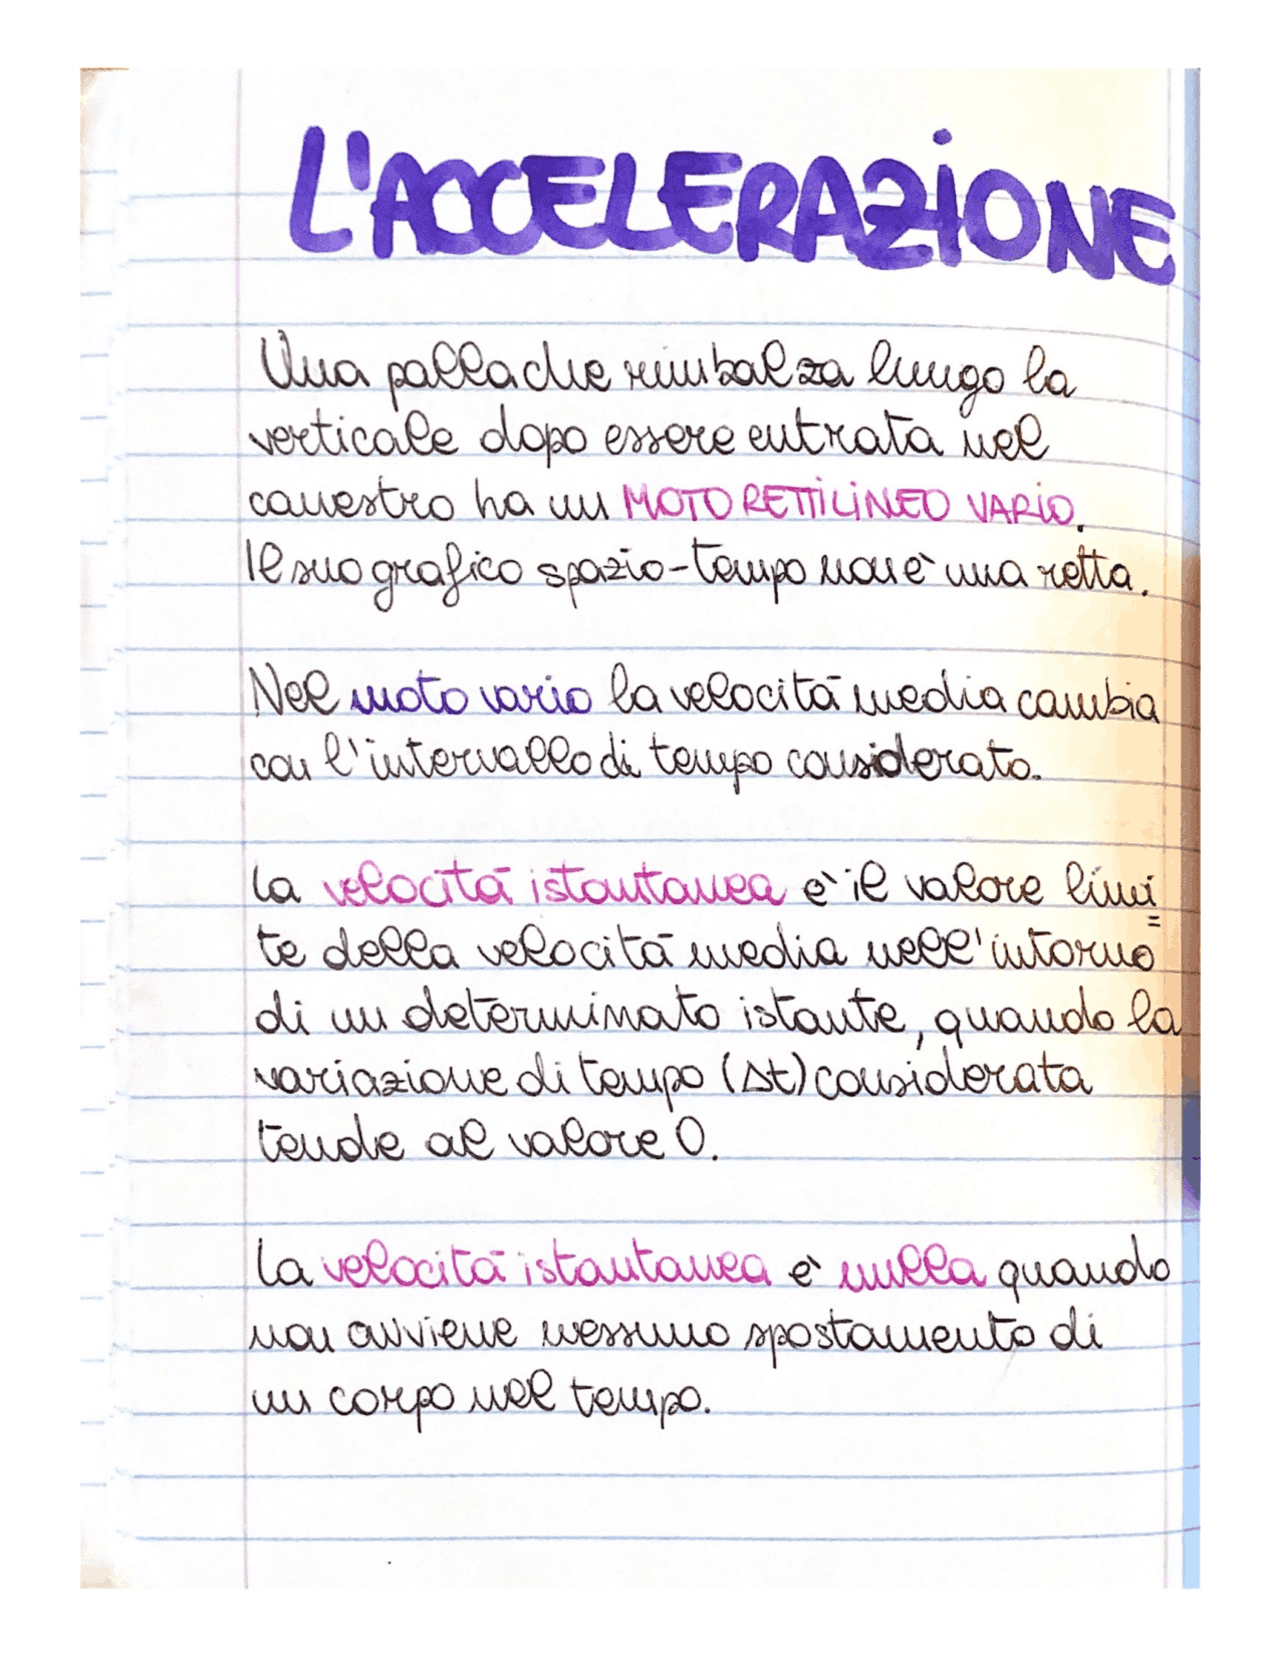 L'ACCELERAZIONE
Una palla che rimbalza lungo la
verticale dopo essere entrata nel
canestro ha un MOTO RETTILINEO VARIO.
Il suo grafico spazio-tempo non è una retta.
Nel moto vario la velocità media cambia
con l'intervallo di tempo considerato.
La velocità istantanea è il valore limi
=
te della velocità media nell'intorno
di un determinato istante, quando la
variazione di tempo (Δt) considerata
tende al valore 0.
La velocità istantanea è nulla quando
non avviene nessuno spostamento di
un corpo nel tempo.